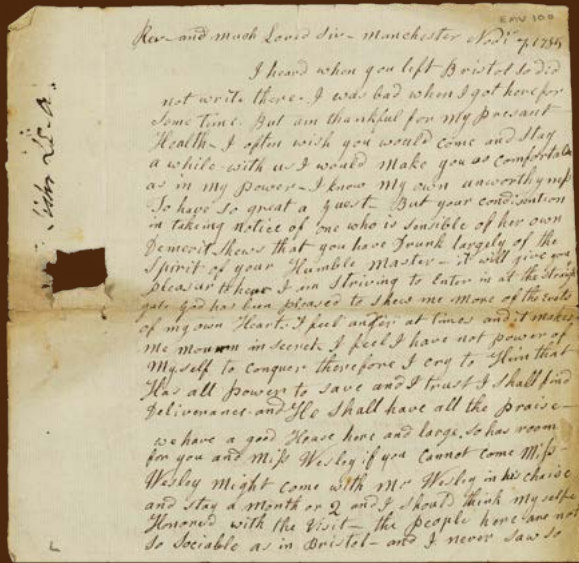 EMV 100
Rev- and much Loved Sir- Manchester Nodr 7 1785
I heard when you left Bristol so did
not write there- I was bad when I got here for
some time. But am thankful for My Presant
Health- I often wish you would come and stay
a while with us I would Make you as comfortable
as in my Power- I know My own unworthyness
To have so great a guest- But your condissention
in taking notice of one who is sensible of her own
Demerit Shews that you have Drunk largely of the
Spirit of your Humble Master- it will give you
pleasur to hear I am Striving to Enter in at the Straight
gate God has been pleased to shew me More of the Evils
of my own Heart. I feel anger at times and it makes
me mourn in secret. I feel I have not power of
Myself to conquer therefore I cry to Him that
Has all Power to save and I trust I shall find
Deliverance and He shall have all the Praise-
we have a good House here and large, so has room
for you and Miss Wesley if you cannot come Miss-
Wesley might come with mr Wesley in his chaise
and stay a month or 2 and I should think My selfe
Honored with the Visit- the People here are not
so sociable as in Bristol- and I never saw so